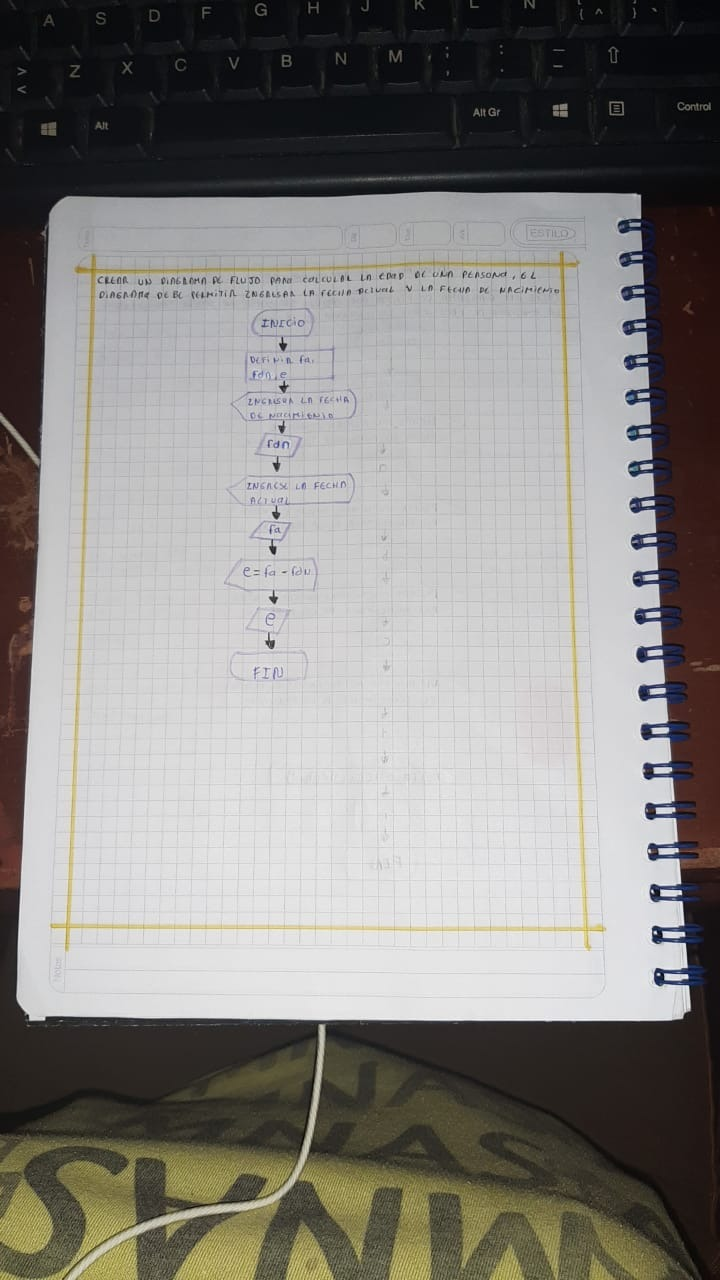 A S D F G H J K L N
Z X C V B N M
Alt Alt Gr Control
ESTILO
CREAR UN DIAGRAMA DE FLUJO PARA CALCULAR LA EDAD DE UNA PERSONA, EL
DIAGRAMA DEBE PERMITIR INGRESAR LA FECHA ACTUAL Y LA FECHA DE NACIMIENTO
INICIO
DEFINIR fa,
fdn, e
INGRESAR LA FECHA
DE NACIMIENTO
fdn
INGRESE LA FECHA
ACTUAL
fa
e = fa - fdn
e
FIN
Notas